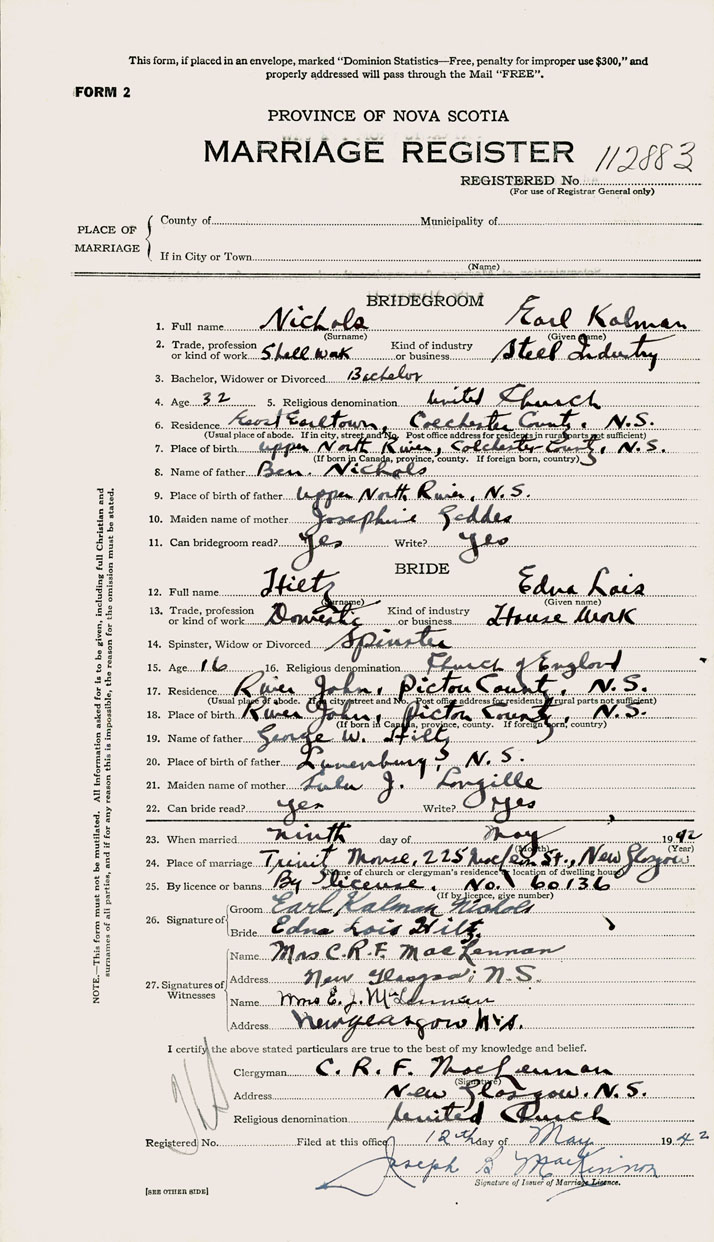 This form, if placed in an envelope, marked "Dominion Statistics—Free, penalty for improper use $300," and
properly addressed will pass through the Mail "FREE".
FORM 2
PROVINCE OF NOVA SCOTIA
MARRIAGE REGISTER 112883
REGISTERED No.
(For use of Registrar General only)
PLACE OF MARRIAGE
County of Municipality of
If in City or Town
(Name)
BRIDEGROOM
1. Full name Nichols Earl Kalman
(Surname) (Given name)
2. Trade, profession or kind of work Steel Kind of industry or business Steel Industry
3. Bachelor, Widower or Divorced Bachelor
4. Age 32 5. Religious denomination United Church
6. Residence East Earltown, Colchester County, N.S.
(Usual place of abode. If in city, street and No. Post office address for residents in rural parts not sufficient)
7. Place of birth Upper North River, Colchester County, N.S.
(If born in Canada, province, county. If foreign born, country)
8. Name of father Ben. Nichols
9. Place of birth of father Upper North River, N.S.
10. Maiden name of mother Josephine Geddes
11. Can bridegroom read? Yes Write? Yes
BRIDE
12. Full name Hiltz Edna Lois
(Surname) (Given name)
13. Trade, profession or kind of work Domestic Kind of industry or business House Work
14. Spinster, Widow or Divorced Spinster
15. Age 16 16. Religious denomination Church of England
17. Residence River John, Pictou County, N.S.
(Usual place of abode. If in city, street and No. Post office address for residents in rural parts not sufficient)
18. Place of birth River John, Pictou County, N.S.
(If born in Canada, province, county. If foreign born, country)
19. Name of father George W. Hiltz
20. Place of birth of father Lunenburg, N.S.
21. Maiden name of mother Lulu J. Longille
22. Can bride read? Yes Write? Yes
23. When married ninth day of May 1942
(Month) (Year)
24. Place of marriage 225 St., New Glasgow
(Name of church or clergyman's residence location of dwelling house)
25. By licence or banns By License. No. 60136
(If by licence, give number)
26. Signature of
Groom Earl Kalman Nichols
Bride Edna Lois Hiltz
27. Signatures of Witnesses
Name Mrs C.R.F. MacLennan
Address New Glasgow, N.S.
Name Mrs E. J. McLennan
Address New Glasgow N.S.
I certify the above stated particulars are true to the best of my knowledge and belief.
Clergyman C. R. F. MacLennan
(Signature)
Address New Glasgow. N.S.
Religious denomination United Church
Registered No. Filed at this office 12th day of May 1942
Joseph B MacKinnon
Signature of Issuer of Marriage Licence.
[SEE OTHER SIDE]
NOTE.—This form must not be mutilated. All Information asked for is to be given, including full Christian and
surnames of all parties, and if for any reason this is impossible, the reason for the omission must be stated.